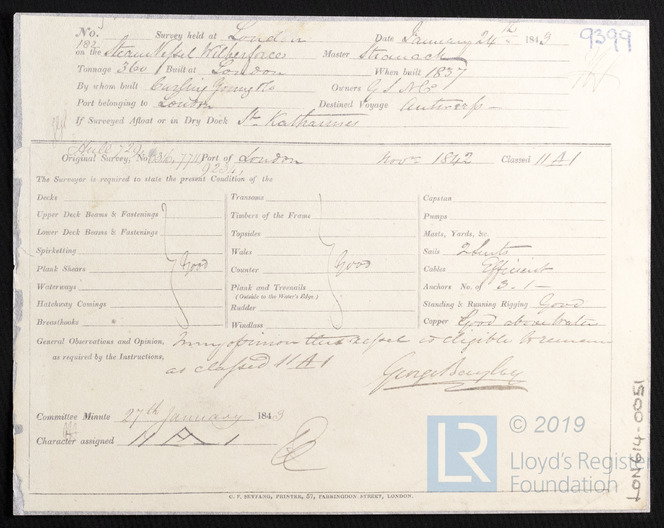 No. 182 Survey held at London Date January 24th 1843 9399
on the Steam Vessel Wilberforce Master Stranack
Tonnage 360 Built at London When built 1837
By whom built Curling Young & Co Owners G S N Co
Port belonging to London Destined Voyage Antwerp
If Surveyed Afloat or in Dry Dock St Katharines
Original Survey, No. Port of London Novr 1842 Classed 11 A 1
9234
The Surveyor is required to state the present Condition of the
Decks Transoms Capstan
Upper Deck Beams & Fastenings Timbers of the Frame Pumps
Lower Deck Beams & Fastenings Topsides Masts, Yards, &c.
Spirketting Wales Sails 2 Suits
Plank Shears Good Counter Good Cables Efficient
Waterways Plank and Treenails Anchors No. of 3.1
(Outside to the Water's Edge.)
Hatchway Comings Rudder Standing & Running Rigging Good
Breasthooks Windlass Copper Good above water
General Observations and Opinion, In my opinion this vessel is eligible to remain
as required by the Instructions, as classed 11 A 1
George Bayley
Committee Minute 27th January 1843
Character assigned 11 A 1
C. F. SEYFANG, PRINTER, 57, FARRINGDON STREET, LONDON.
LON614-0051
LR © 2019
Lloyd's Register
Foundation